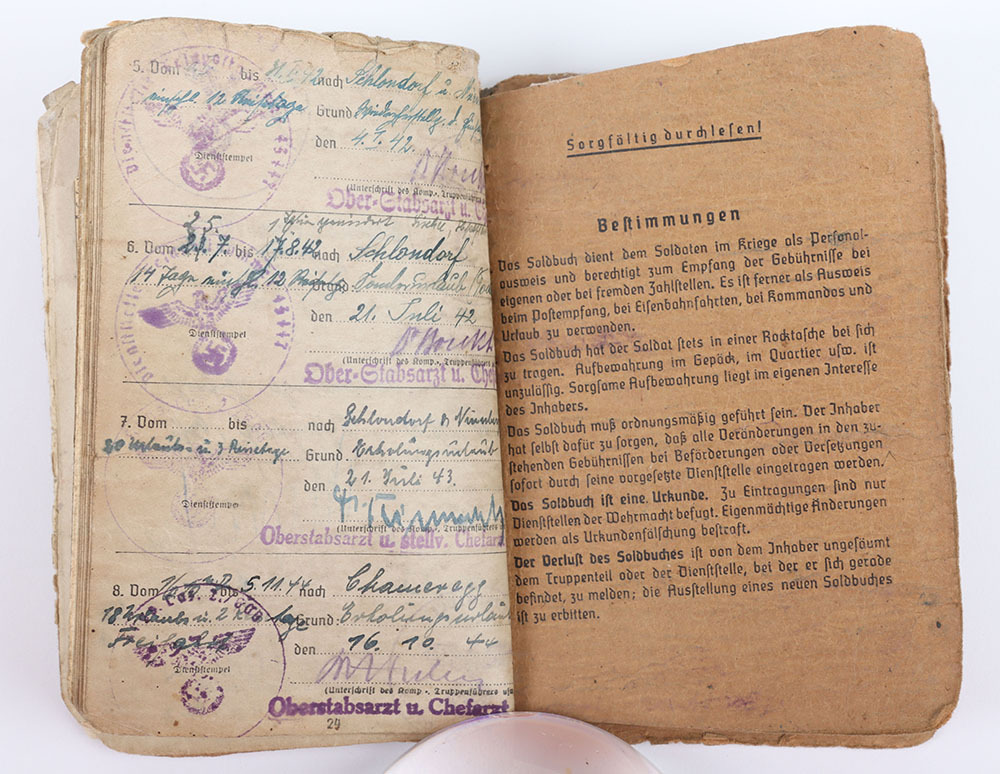 5. Vom bis nach Schlondorf u.
einschl. 12 Reisetage Grund
den 4.
Dienststempel
(Unterschrift des Komp.-, Truppenführers
Ober-Stabsarzt u.
25.
6. Vom 21. 7. bis 17.8.42 nach Schlondorf
14 Tage einschl. 12 Reisetg. Grund Sonderurlaub
den 21. Juli 42
Dienststempel
(Unterschrift des Komp.-, Truppenführers
Ober-Stabsarzt u. Chef
7. Vom bis nach Schlondorf &
20 Urlaubs- u. 3 Reisetage Grund Erholungsurlaub
den 21. Juli 43.
Dienststempel
(Unterschrift des Komp.-, Truppenführers
Oberstabsarzt u. stellv. Chefarzt
8. Vom bis 5.11.44 nach Chameregg
18 Urlaubs u. 2 Grund: Erholungsurlaub
den 16. 10. 44
Dienststempel
(Unterschrift des Komp.-, Truppenführers usw.
Oberstabsarzt u. Chefarzt
29
Sorgfältig durchlesen!
Bestimmungen
Das Soldbuch dient dem Soldaten im Kriege als Personal-
ausweis und berechtigt zum Empfang der Gebührnisse bei
eigenen oder bei fremden Zahlstellen. Es ist ferner als Ausweis
beim Postempfang, bei Eisenbahnfahrten, bei Kommandos und
Urlaub zu verwenden.
Das Soldbuch hat der Soldat stets in einer Rocktasche bei sich
zu tragen. Aufbewahrung im Gepäck, im Quartier usw. ist
unzulässig. Sorgsame Aufbewahrung liegt im eigenen Interesse
des Inhabers.
Das Soldbuch muß ordnungsmäßig geführt sein. Der Inhaber
hat selbst dafür zu sorgen, daß alle Veränderungen in den zu-
stehenden Gebührnissen bei Beförderungen oder Versetzungen
sofort durch seine vorgesetzte Dienststelle eingetragen werden.
Das Soldbuch ist eine Urkunde. Zu Eintragungen sind nur
Dienststellen der Wehrmacht befugt. Eigenmächtige Änderungen
werden als Urkundenfälschung bestraft.
Der Verlust des Soldbuches ist von dem Inhaber ungesäumt
dem Truppenteil oder der Dienststelle, bei der er sich gerade
befindet, zu melden; die Ausstellung eines neuen Soldbuches
ist zu erbitten.